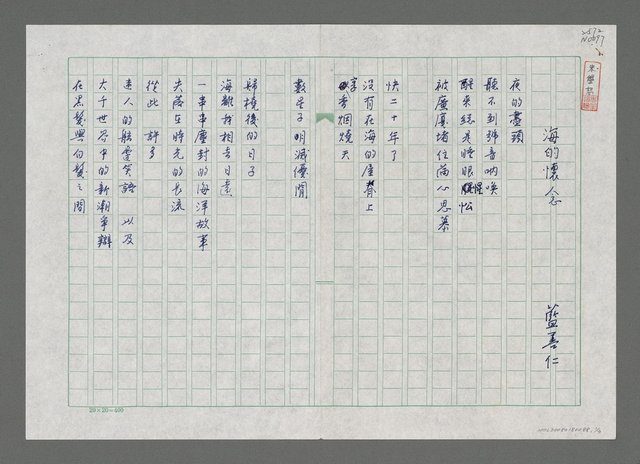 海的懷念
藍善仁
夜的盡頭
聽不到錨音吶喚
醒來總是睡眼惺忪
被廈廈堵住滿心思慕
快二十年了
沒有在海的屋脊上
享受香烟燒天
數星子明滅優閒
歸橈後的日子
海離我相去日遠
一串串塵封的海洋故事
失落在時光的長流
從此 許多
迷人的航靈笑語 以及
大千世界中的新潮爭辯
在黑髮與白髮之間
20×20=400